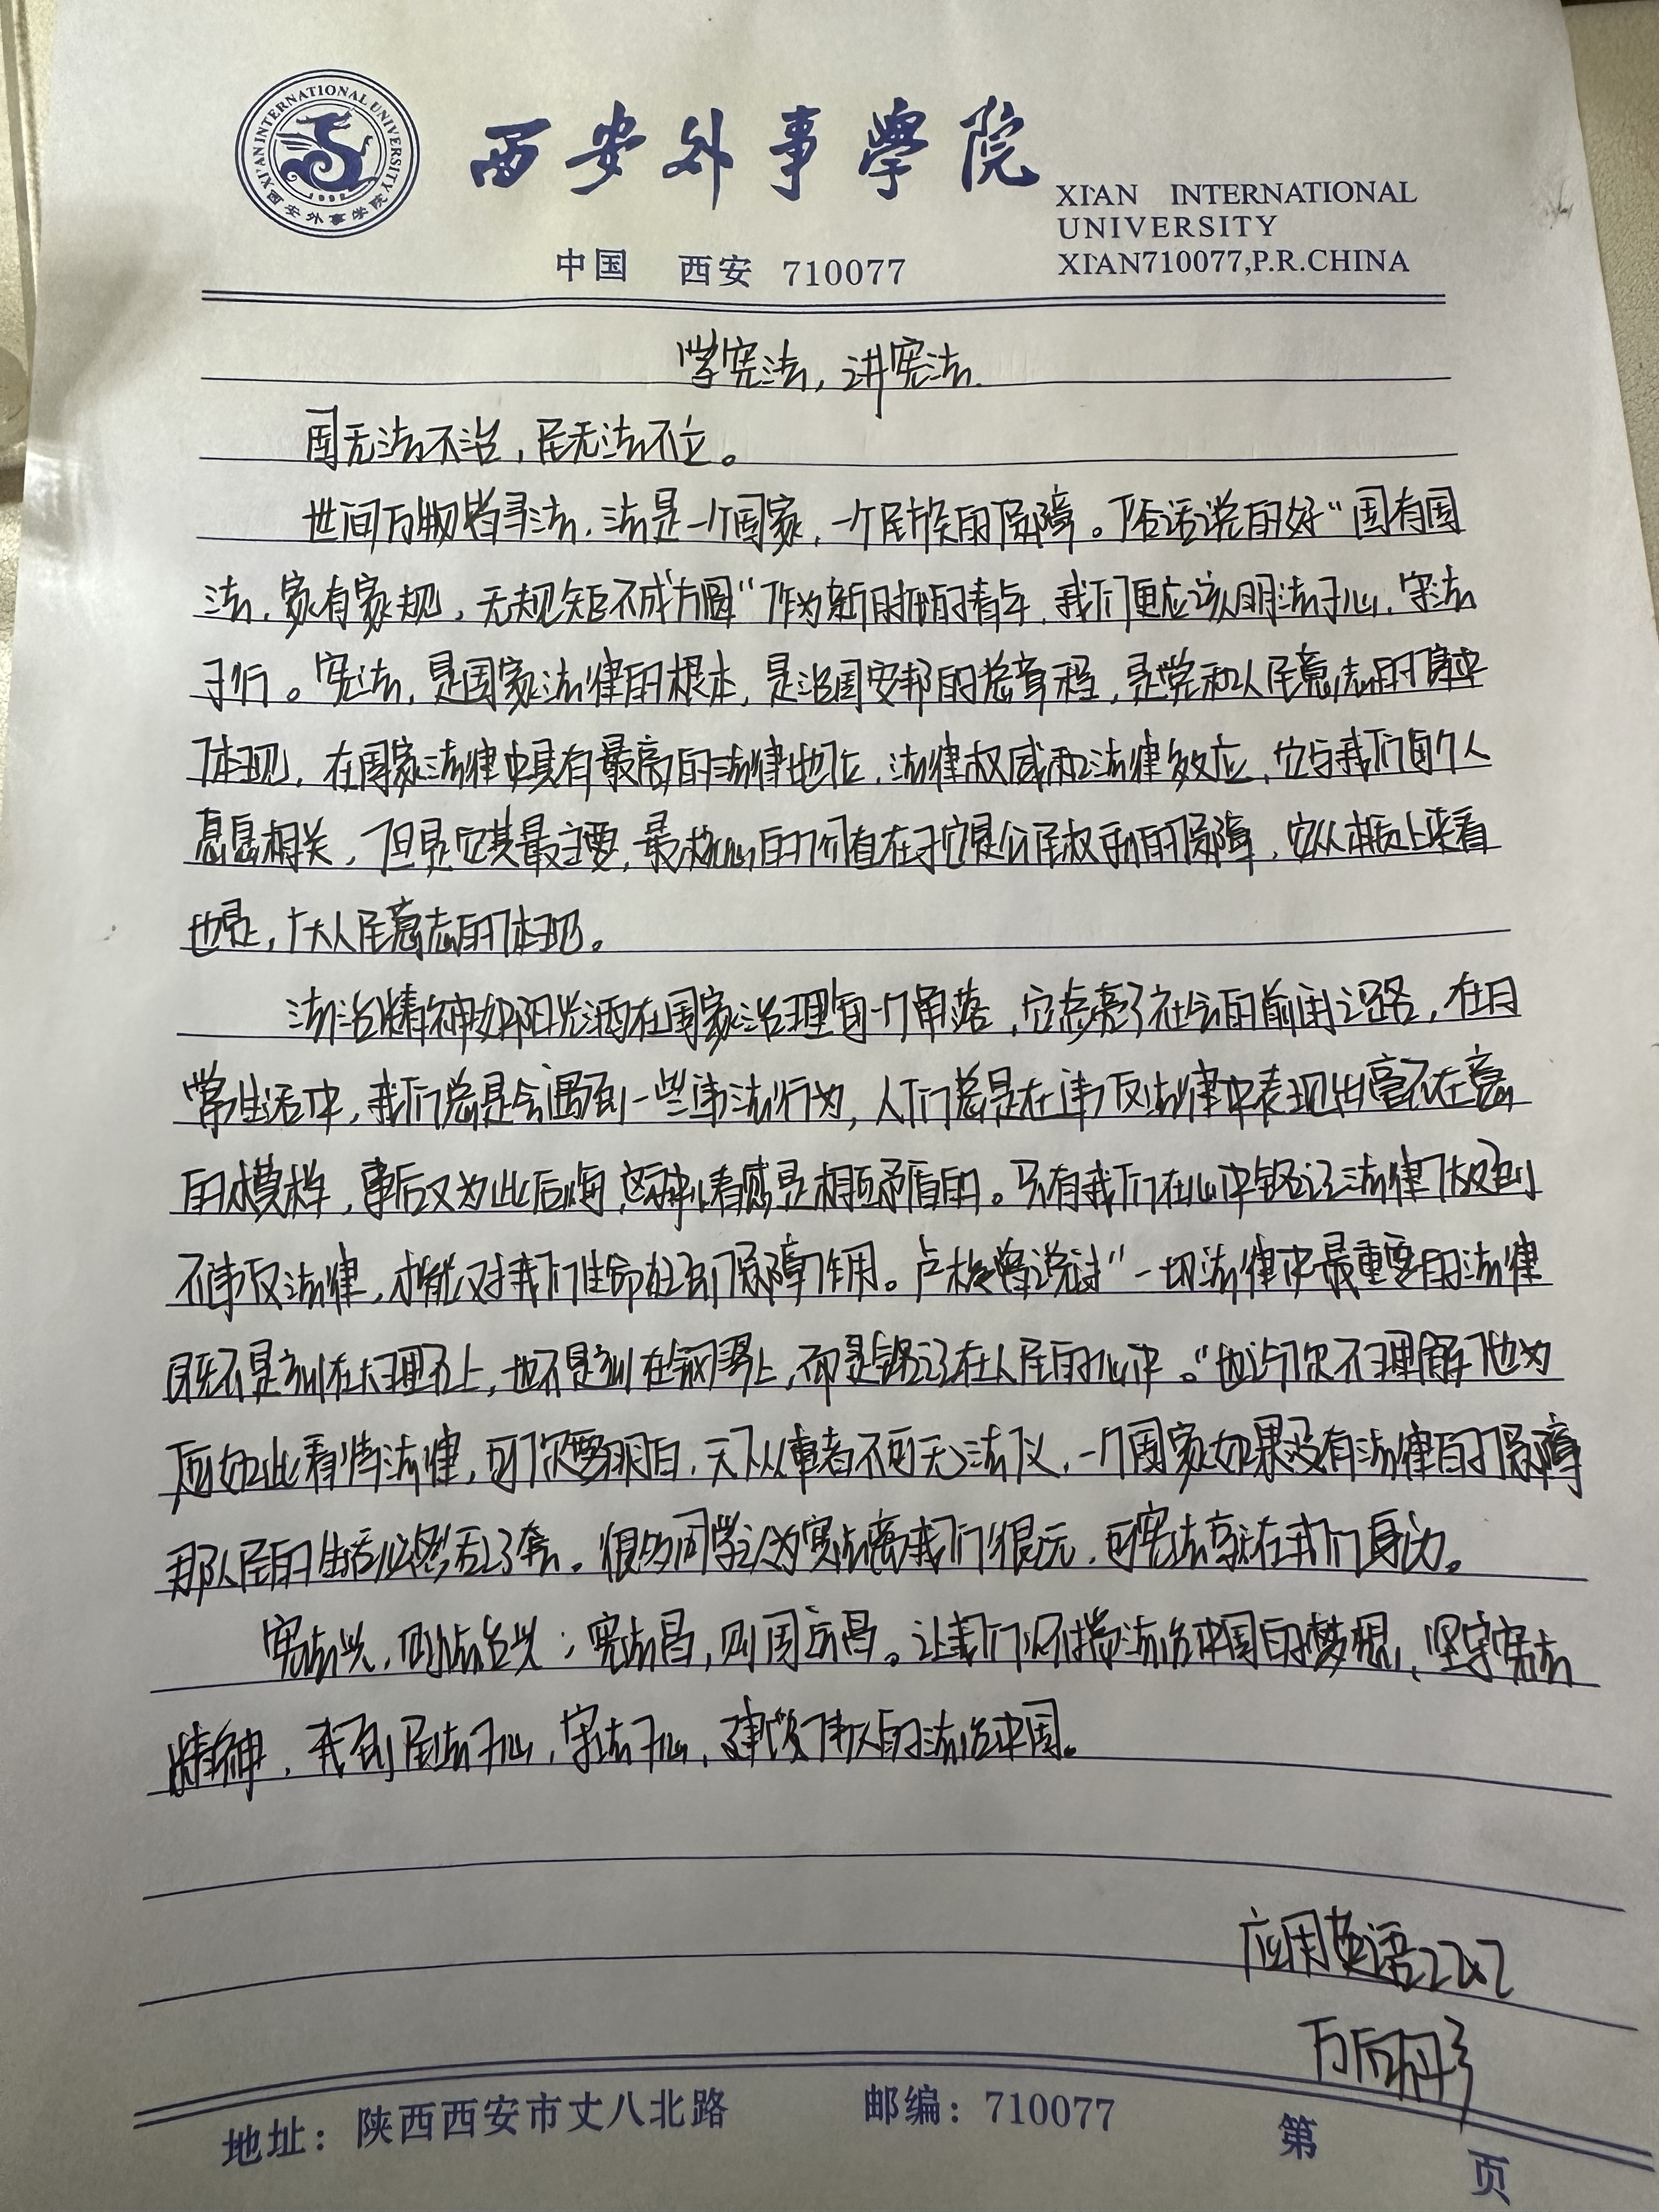 XI'AN INTERNATIONAL UNIVERSITY
西安外事学院
西安外事學院
XI'AN INTERNATIONAL
UNIVERSITY
中国 西安 710077
XI'AN710077,P.R.CHINA
学宪法，讲宪法.
国无法不治，民无法不立。
世间万物皆寻法，法是一个国家，一个民族的保障。俗话说的好“国有国
法，家有家规，无规矩不成方圆“作为新时代的青年，我们更应该明法于心，守法
于行。宪法，是国家法律的根本，是治国安邦的总章程，是党和人民意志的集中
体现，在国家法律中具有最高的法律地位，法律权威和法律效应，它与我们每个人
息息相关，但是它其最主要，最核心的价值在于它是公民权利的保障，它从本质上来看
也是，广大人民意志的体现。
法治精神如阳光洒在国家治理每一个角落，它点亮了社会的前进之路，在日
常生活中，我们总是会遇到一些违法行为，人们总是在违反法律中表现出毫不在意
的模样，事后又为此后悔，这种情感是相互矛盾的。只有我们在心中铭记法律做到
不违反法律，才能对我们生命起到保障作用。卢梭曾说过“一切法律中最重要的法律
既不是刻在大理石上，也不是刻在铜器上，而是铭记在人民的心中。“也许你不理解他为
何如此看待法律，可你要明白，天下从事者不可无法仪，一个国家如果没有法律的保障
那人民的生活必然活了套。很多同学认为宪法离我们很远，可宪法就在我们身边。
宪法兴，则法治兴；宪法昌，则国运昌。让我们怀揣法治中国的梦想，坚守宪法
精神，我到尊法于心，守法于心，建设伟大的法治中国。
应用英语2202
万雨彤
地址：陕西西安市丈八北路 邮编：710077 第 页